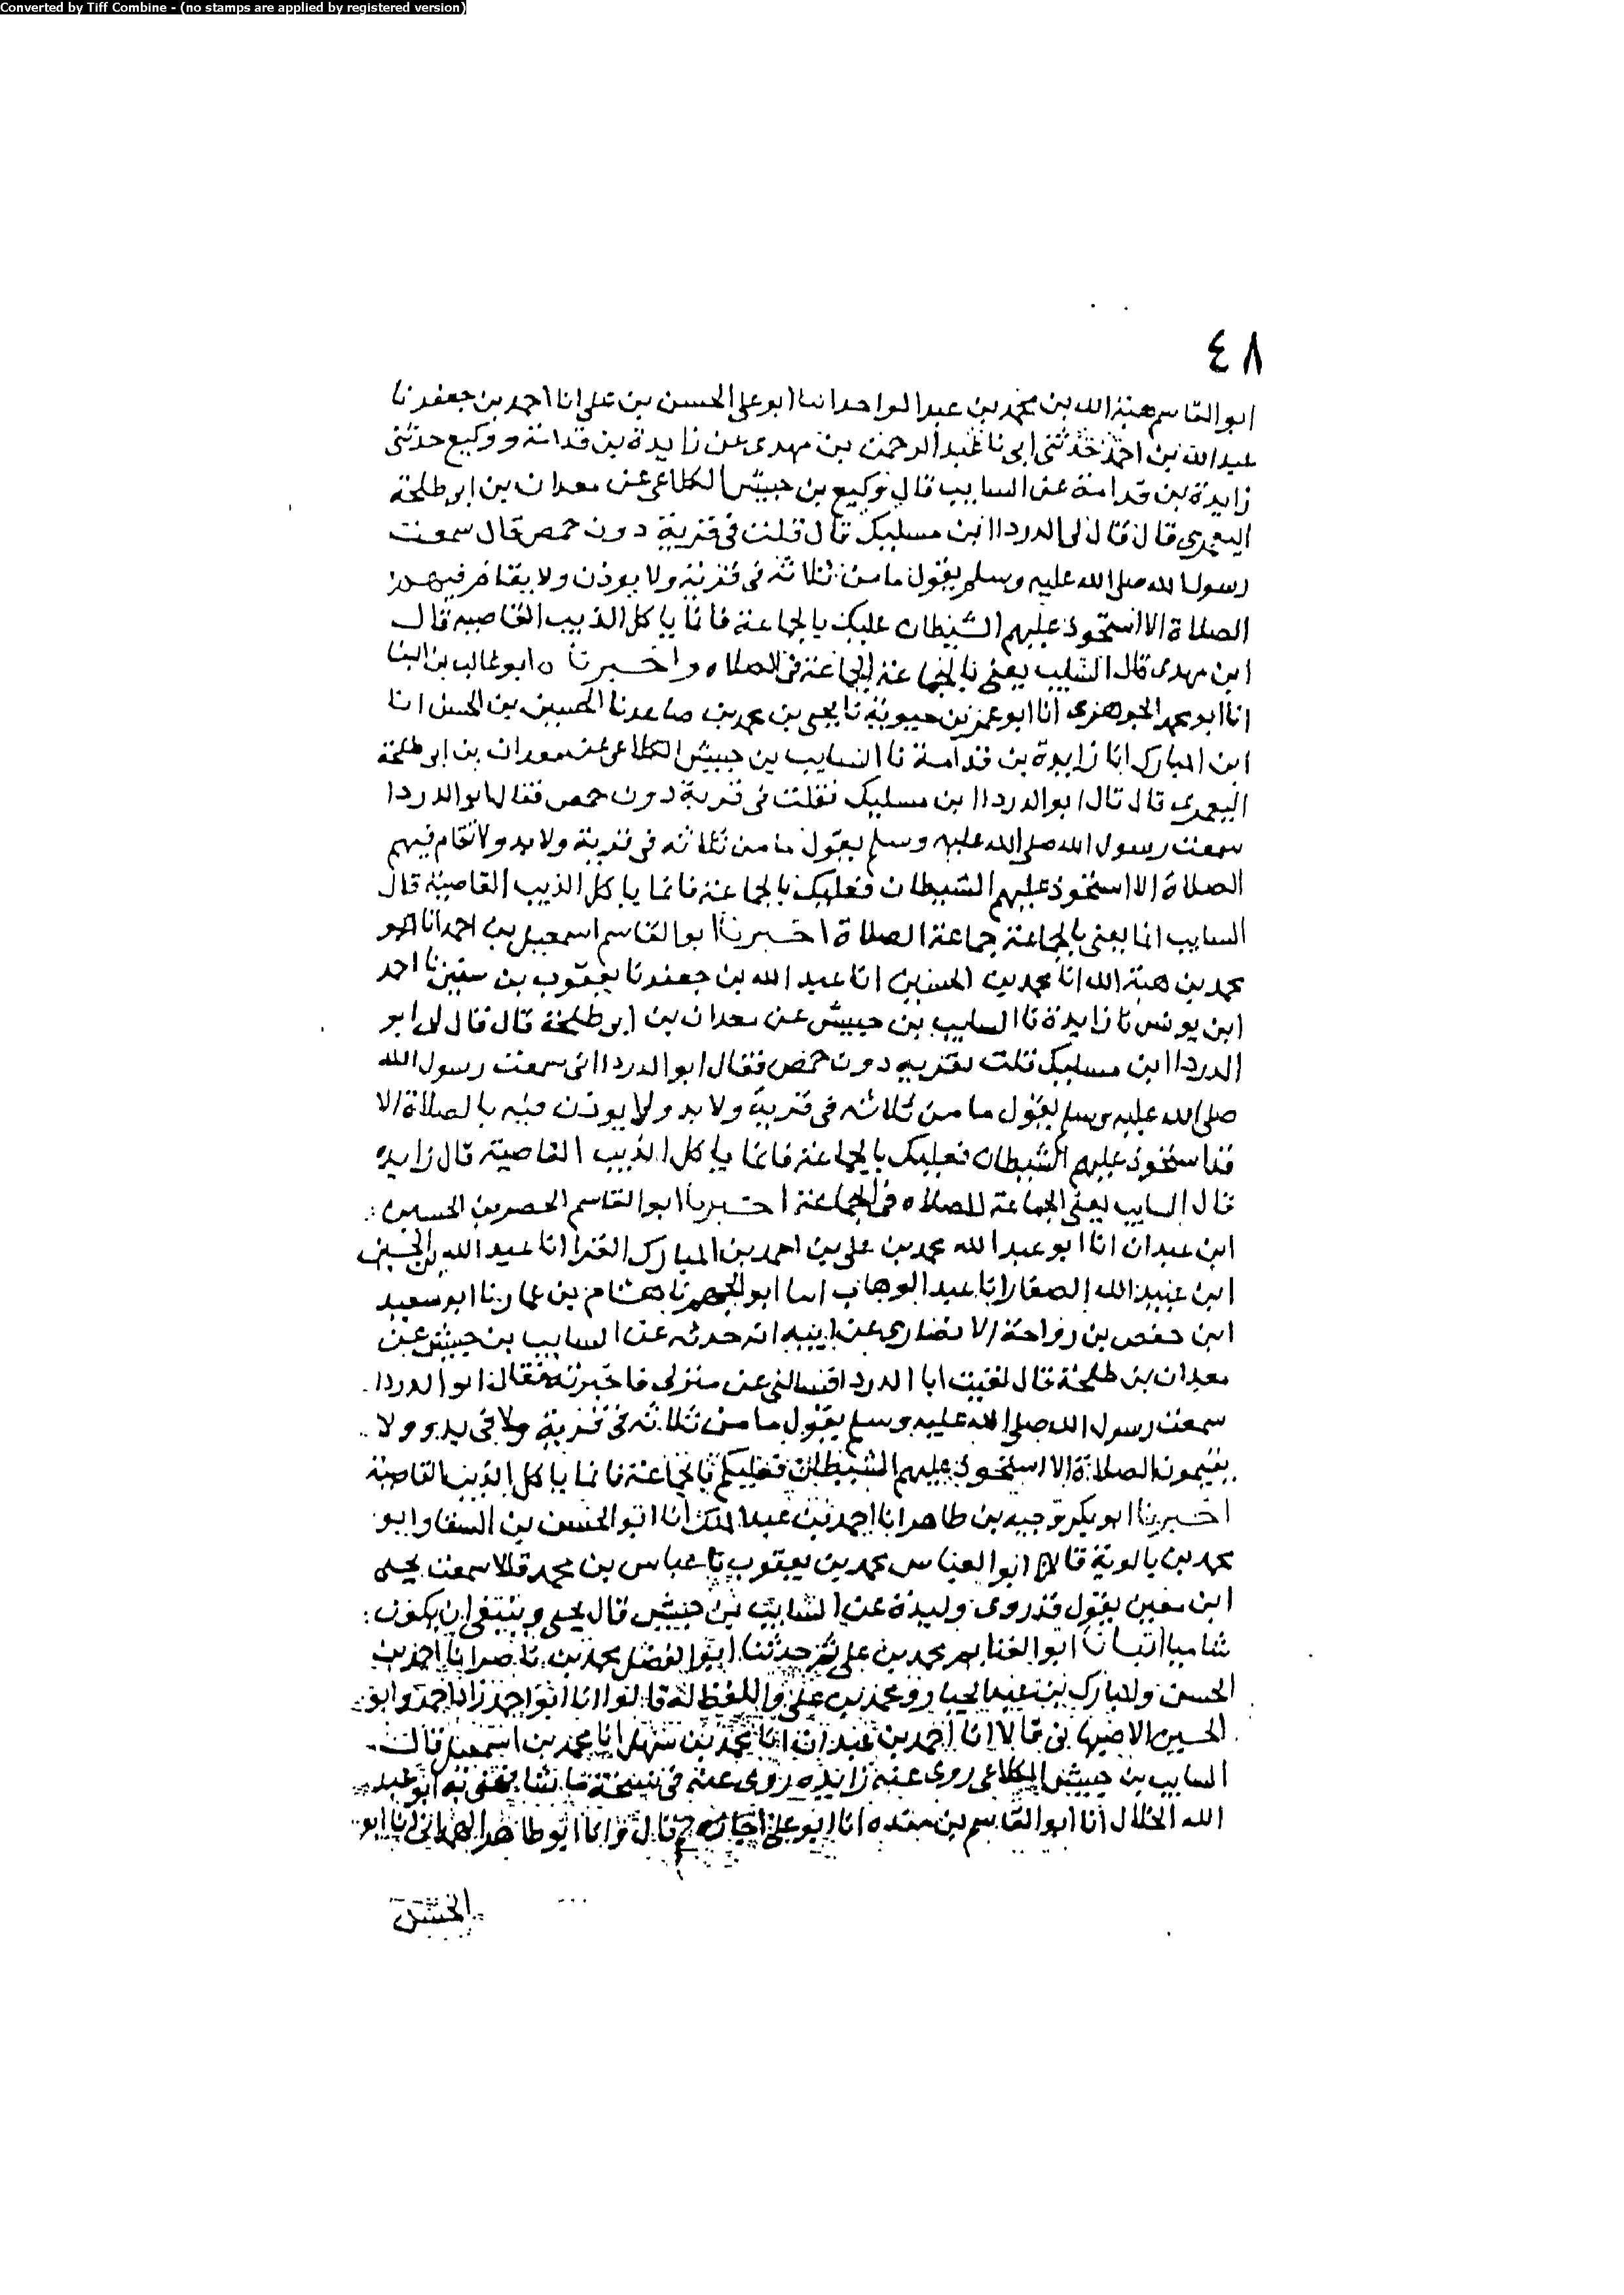 Converted by Tiff Combine - (no stamps are applied by registered version)
٤٨
ابو القاسم هبة الله بن محمد بن عبد الواحد انا ابو علي الحسن بن علي انا احمد بن جعفر نا
عبد الله بن احمد حدثني ابي نا عبد الرحمن بن مهدي عن زايدة بن قدامة ووكيع حدثني
زايدة بن قدامة عن السايب قال وكيع بن حبيش الكلاعي عن معدان بن ابي طلحة
اليعمري قال قال لي الدرداا اين مسليك قال قلت في قرية دون حمص قال سمعت
رسول الله صلى الله عليه وسلم يقول ما من ثلاثة في قرية ولا يوذن ولا يقام فيهم
الصلاة الا استحوذ عليهم الشيطان عليك بالجماعة فانما ياكل الذيب القاصية قال
ابن مهدي قال السايب يعني بالجماعة الجماعة في الصلاه واخبرنا ابو غالب بن البنا
انا ابو محمد الجوهري انا ابو عمر بن حيوية نا يحيى بن محمد بن صاعد نا الحسين بن الحسن انا
ابن المبارك انا زايدة بن قدامة نا السايب بن حبيش الكلاعي عن معدان بن ابي طلحة
اليعمري قال قال ابو الدرداا ين مسليك فقلت في قرية دون حمص فقال ابو الدردا
سمعت رسول الله صلى الله عليه وسلم يقول ما من ثلاثه في قرية ولا بد ولا تقام فيهم
الصلاة الا استحوذ عليهم الشيطان فعليك بالجماعة فانما ياكل الذيب القاصية قال
السايب انما يعني بالجماعة جماعة الصلاة اخبرنا ابو القاسم اسمعيل بن احمد انا ابو
محمد بن هبة الله انا محمد بن الحسين انا عبد الله بن جعفر نا يعقوب بن سفين نا احمد
ابن يونس نا زايدة نا السايب بن حبيش عن معدان بن ابي طلحة قال قال لي ابو
الدرداا اين مسليك قلت بقريه دون حمص فقال ابو الدرداا اني سمعت رسول الله
صلى الله عليه وسلم يقول ما من ثلاثه في قرية ولا بد ولا يوذن فيه بالصلاة الا
قد استحوذ عليهم الشيطان فعليك بالجماعة فانما ياكل الذيب القاصية قال زايده
قال السايب يعني الجماعة للصلاه في الجماعة اخبرنا ابو القاسم الخضر بن الحسين
ابن عبدان انا ابو عبد الله محمد بن علي بن احمد بن المبارك الفرا انا عبد الله بن الحسين
ابن عبيد الله الصفار انا عبد الوهاب انا ابو الجهم نا هشام بن عمار نا ابو سعيد
ابن حفص بن رواحة الانصاري عن ابيه انه حدثه عن السايب بن حبيش عن
معدان بن طلحة قال لقيت ابا الدردا فسالني عن منزلي فاخبرته فقال ابو الدردا
سمعت رسول الله صلى الله عليه وسلم يقول ما من ثلاثة في قرية ولا في بدو ولا
يقيمون الصلاة الا استحوذ عليهم الشيطان فعليكم بالجماعة فانما ياكل الذيب القاصية
اخبرنا ابو بكر وجيه بن طاهر انا احمد بن عبد الملك انا ابو الحسن بن السقا وابو
محمد بن بالوية قالا ابو العباس محمد بن يعقوب نا عباس بن محمد قالا سمعت يحيى
ابن معين يقول قد روى وليدة عن السايب بن حبيش قال يحيى وينبغي ان يكون
شاميا انبانا ابو الغنايم محمد بن علي ثم حدثنا ابو الفضل محمد بن ناصر انا احمد بن
الحسن والمبارك بن عبد الجبار ومحمد بن علي واللفظ له قالوا انا ابو احمد زاد احمد وابو
الحسين الاصبهاني قالا انا احمد بن عبدان انا محمد بن سهل انا محمد بن اسمعيل قال
السايب بن حبيش الكلاعي روى عنه زايده روى عنه في نسخة ابو عبد
الله الخلال انا ابو القاسم بن منده انا ابو علي اجازة ح قال وانا ابو طاهر الهمداني انا ابو
الحسن